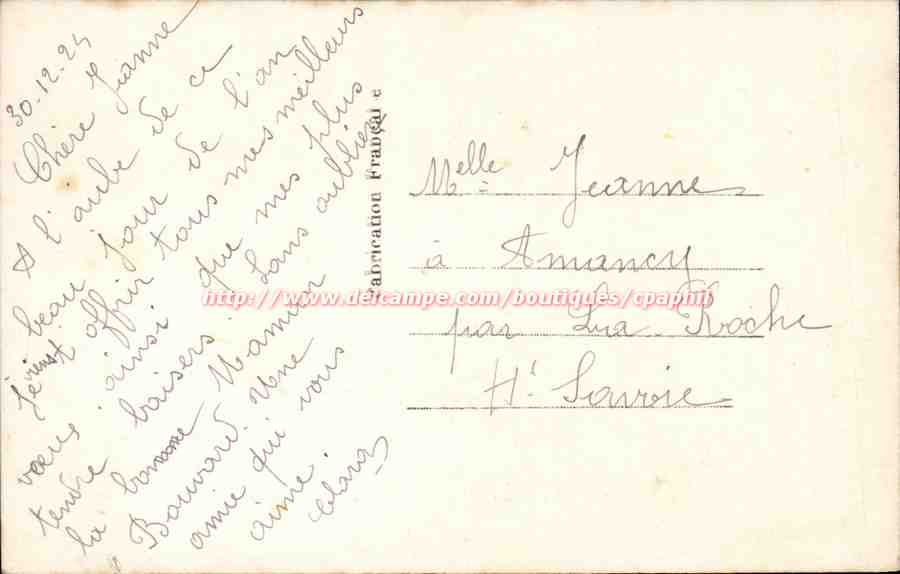 30.12.24
Chère Jeanne
A l'aube de ce
beau jour de l'an
Je viens t offrir tous mes meilleurs
vœux ainsi que mes plus
tendre baisers. Sans oublier
la bonne Maman
Bouvard. Une
amie qui vous
aime.
Clara
Fabrication Française
Melle Jeanne
à Amancy
par La Roche
Hte Savoie
http://www.delcampe.com/boutiques/cpaphil